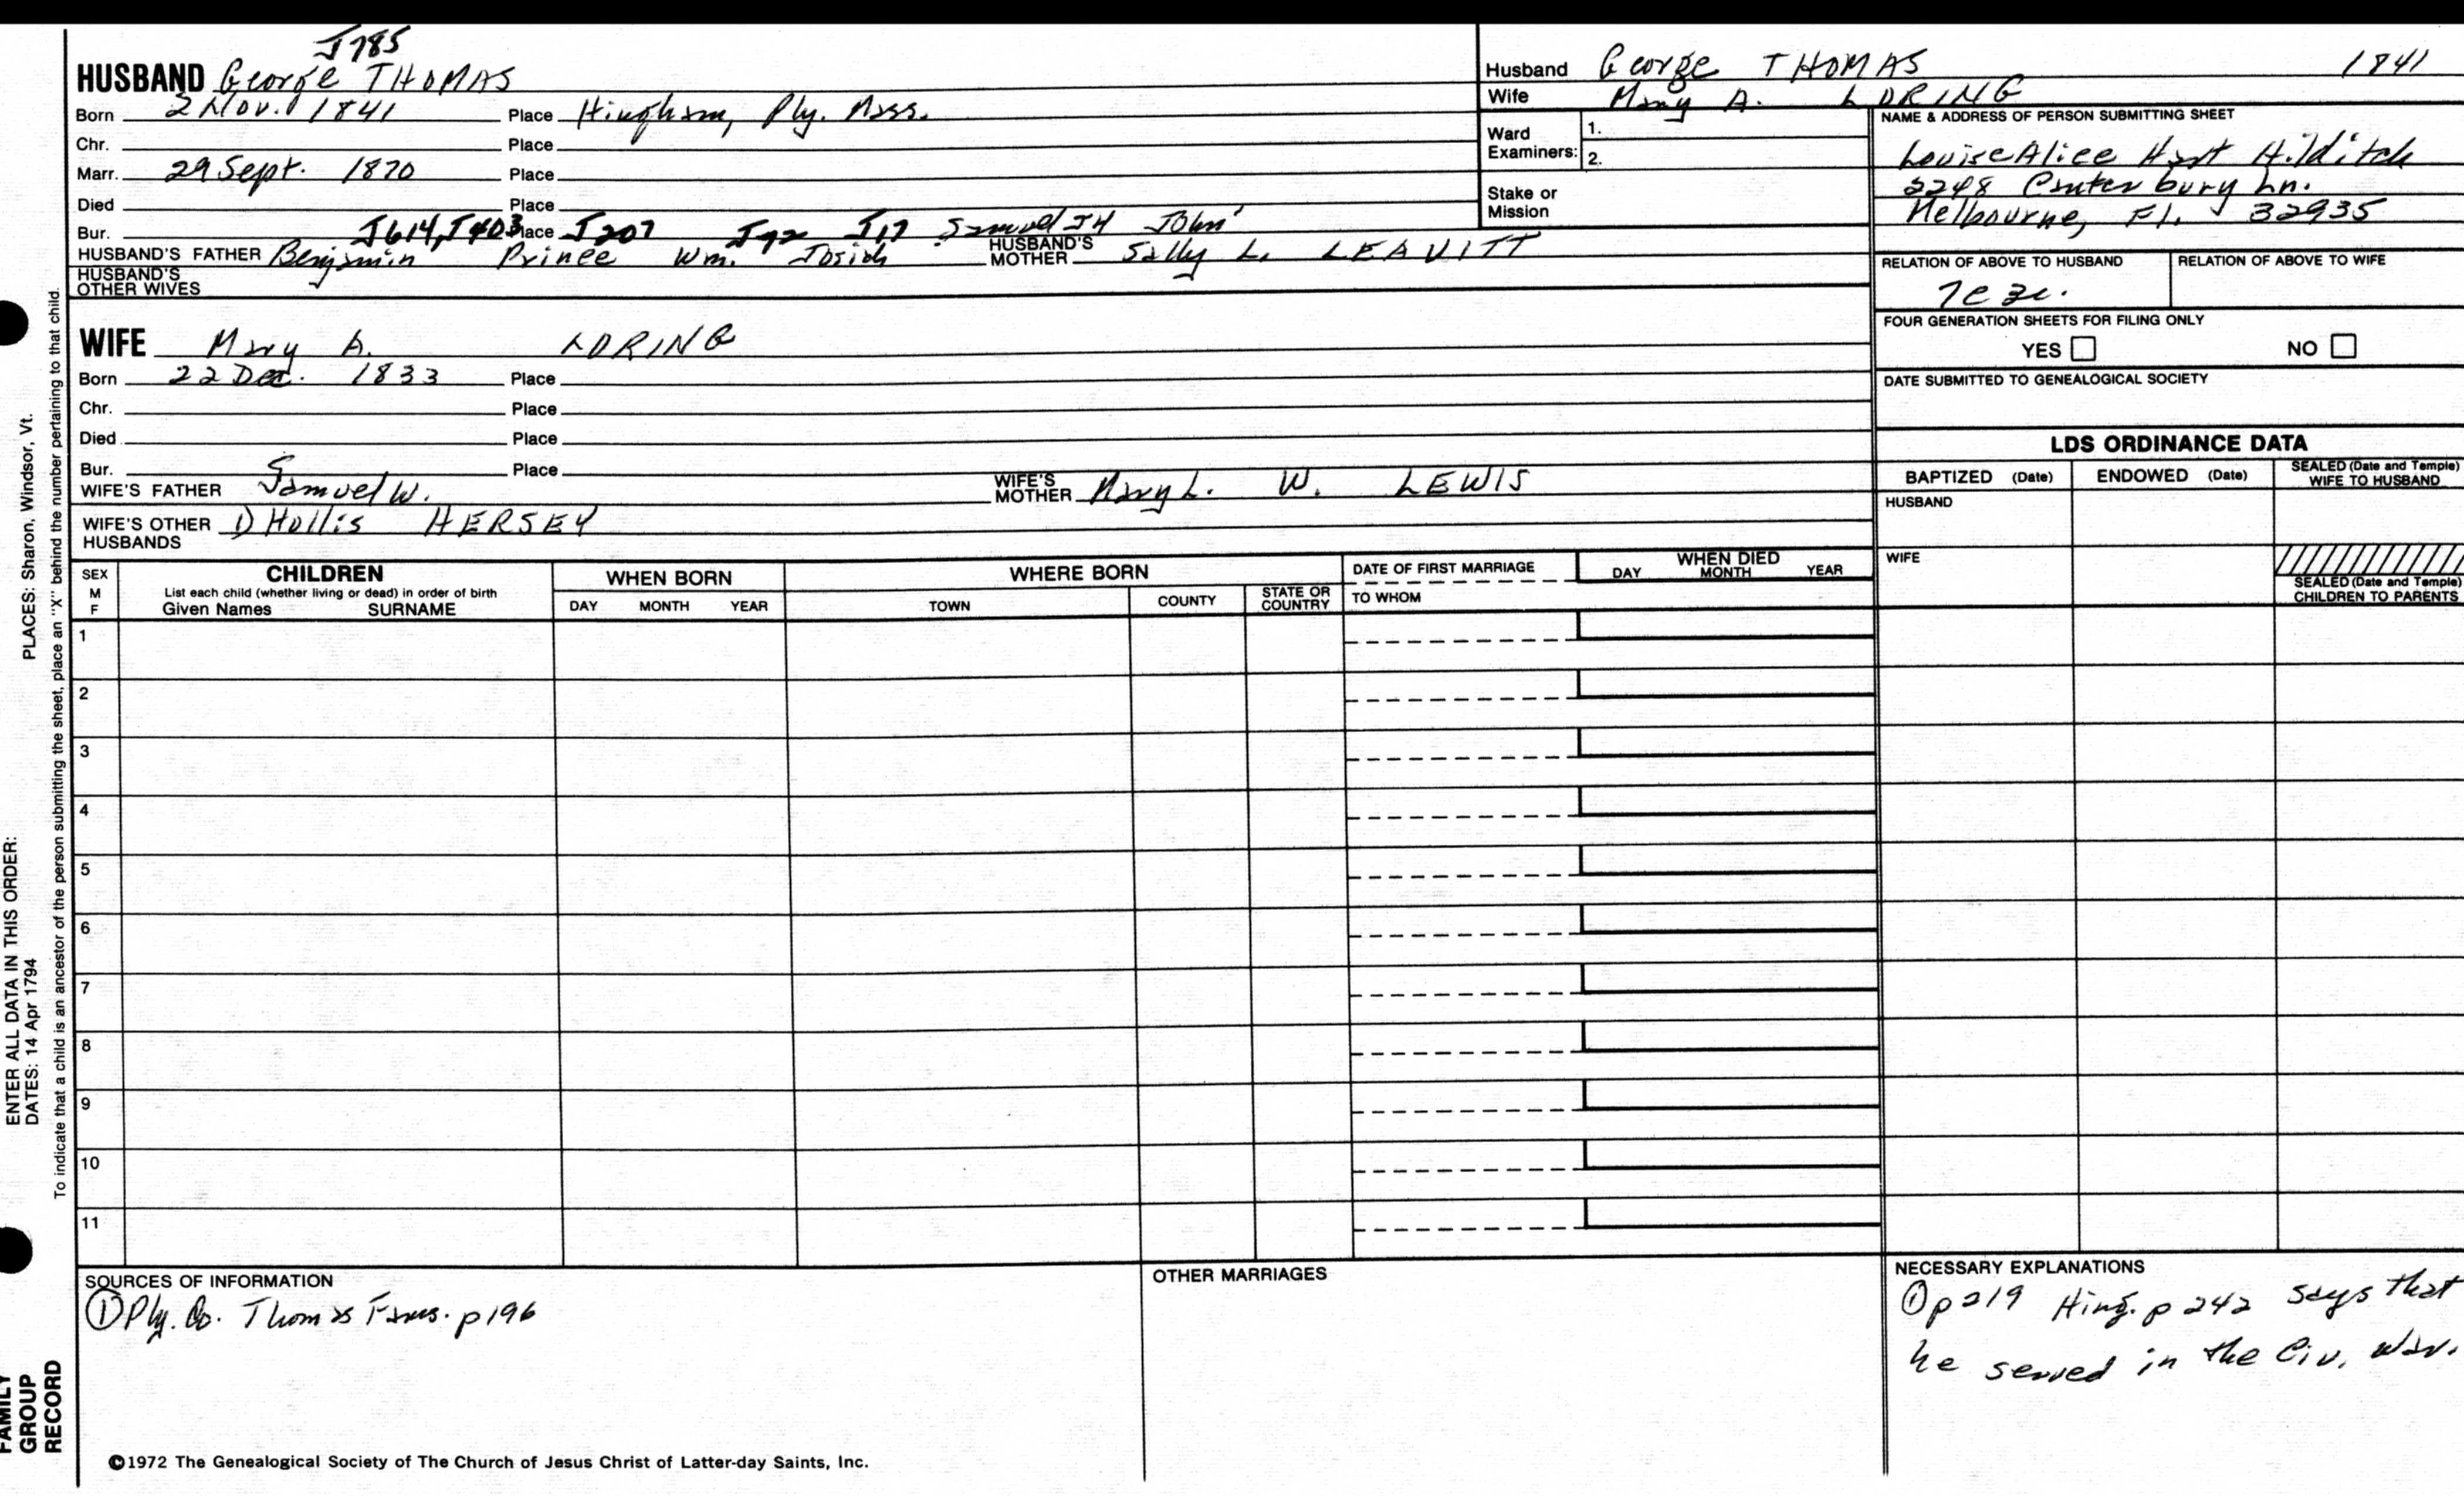 J785
HUSBAND George THOMAS
Born 2 Nov. 1841 Place Hingham, Ply. Mass.
Chr. Place
Marr. 29 Sept. 1870 Place
Died Place
Bur. J614, J403 Place J207 J92 J17 Samuel J4 John'
HUSBAND'S FATHER Benjamin Prince Wm. Josiah HUSBAND'S MOTHER Sally L. LEAVITT
HUSBAND'S OTHER WIVES
Husband George THOMAS 1841
Wife Mary A. LORING
Ward Examiners: 1.
2.
Stake or Mission
NAME & ADDRESS OF PERSON SUBMITTING SHEET
Louise Alice Hart Hilditch
2248 Canterbury Ln.
Melbourne, Fl. 32935
RELATION OF ABOVE TO HUSBAND RELATION OF ABOVE TO WIFE
FOUR GENERATION SHEETS FOR FILING ONLY
YES NO
DATE SUBMITTED TO GENEALOGICAL SOCIETY
WIFE Mary A. LORING
Born 22 Dec. 1833 Place
Chr. Place
Died Place
Bur. Place
WIFE'S FATHER Samuel W. WIFE'S MOTHER Mary L. W. LEWIS
WIFE'S OTHER HUSBANDS 1) Hollis HERSEY
LDS ORDINANCE DATA
BAPTIZED (Date) ENDOWED (Date) SEALED (Date and Temple) WIFE TO HUSBAND
HUSBAND
WIFE
SEALED (Date and Temple) CHILDREN TO PARENTS
SEX M F
CHILDREN
List each child (whether living or dead) in order of birth
Given Names SURNAME
WHEN BORN
DAY MONTH YEAR
WHERE BORN
TOWN COUNTY STATE OR COUNTRY
DATE OF FIRST MARRIAGE
TO WHOM
WHEN DIED
DAY MONTH YEAR
1
2
3
4
5
6
7
8
9
10
11
SOURCES OF INFORMATION
① Ply. Co. Thomas Fams. p196
OTHER MARRIAGES
NECESSARY EXPLANATIONS
① p219 Hing. p 242 says that
he served in the Civ. War.
©1972 The Genealogical Society of The Church of Jesus Christ of Latter-day Saints, Inc.
ENTER ALL DATA IN THIS ORDER:
DATES: 14 Apr 1794 PLACES: Sharon, Windsor, Vt.
To indicate that a child is an ancestor of the person submitting the sheet, place an "X" behind the number pertaining to that child.
FAMILY
GROUP
RECORD